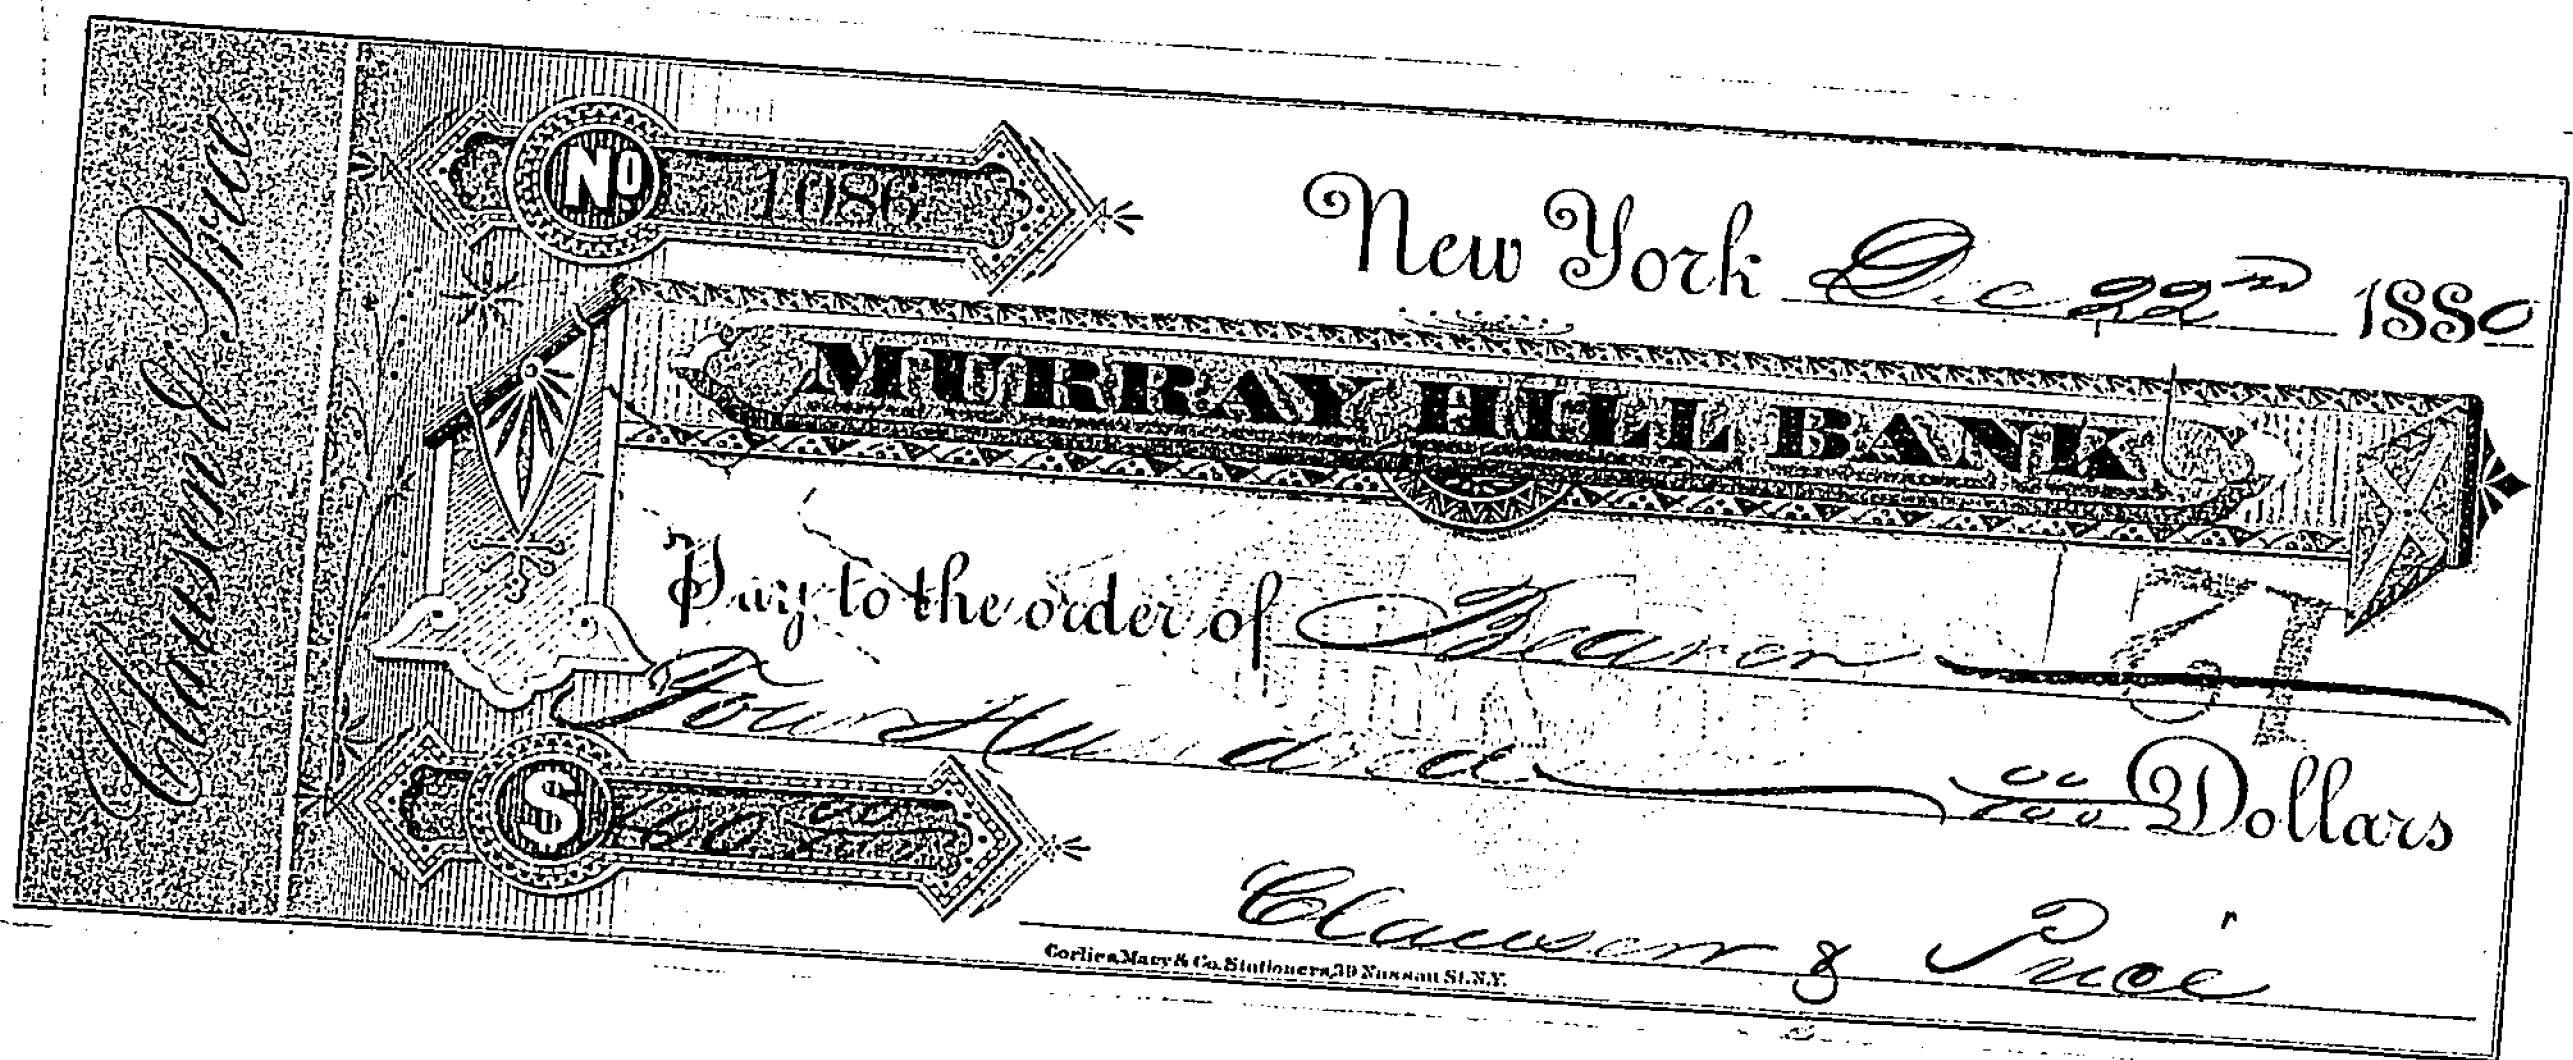 Clawson & Price
No 1086
New York Dec 22nd 1880
MURRAY HILL BANK
Pay to the order of Bearer
Four Hundred 00/100 Dollars
$ 400.00
Clawson & Price
Corlies, Macy & Co. Stationers, 39 Nassau St. N.Y.